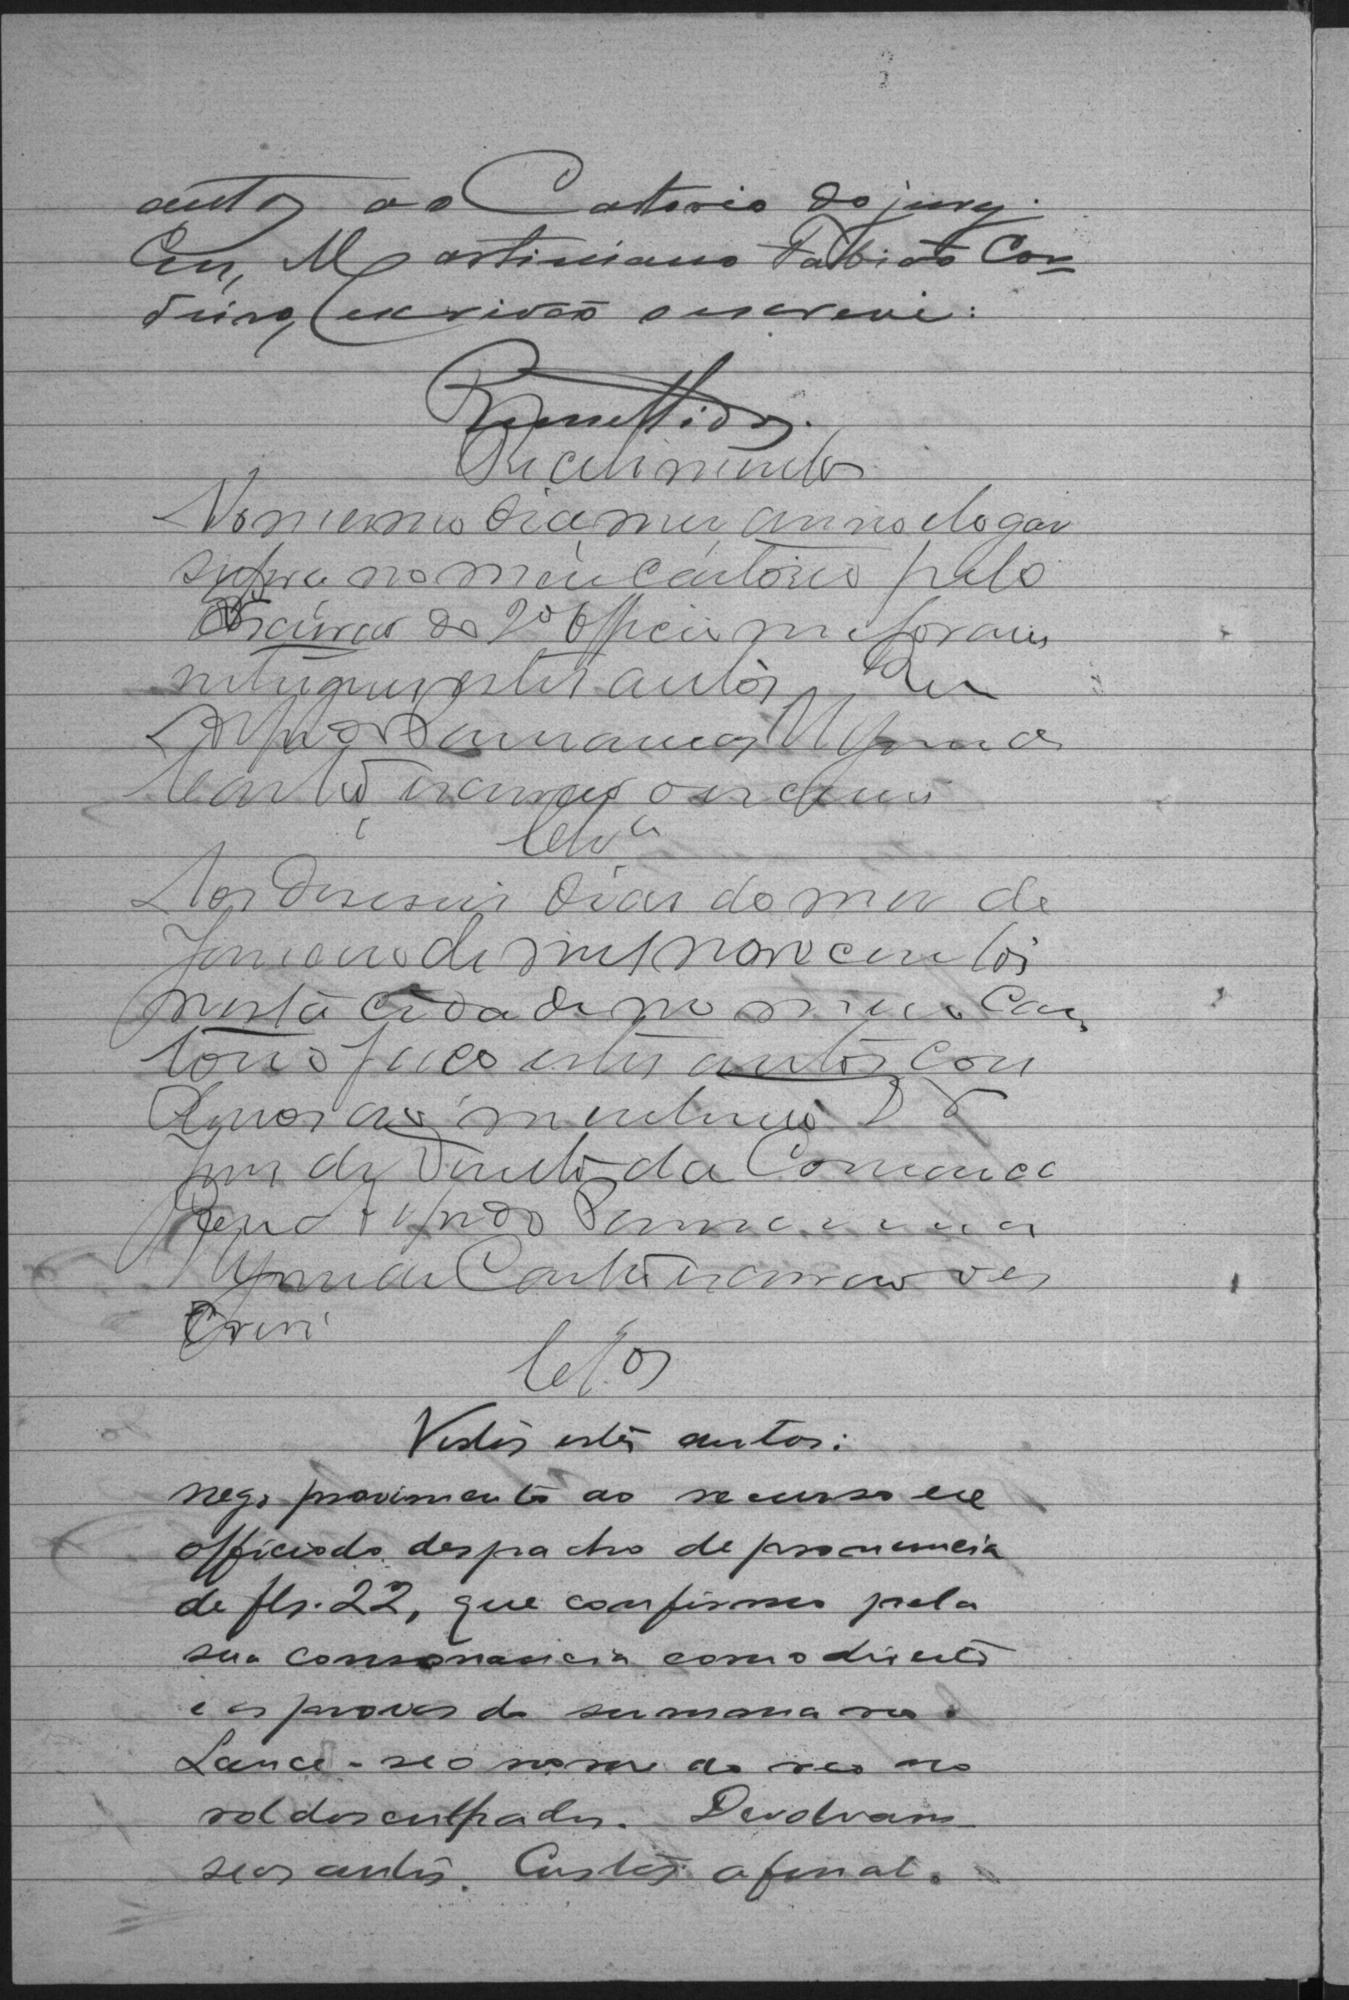 autos ao Cartorio do jury.
Eu, Martiniano Fabião Cor-
deiro, escrivão o escrevi:
Remettidos.
Recebimento
No mesmo dia, mez, anno e logar
supra no meu cartorio pelo
Escrivão do 2º Officio me foram
entregues estes autos Eu
escrivão o escrevi
Clsª
Aos deseseis dias do mez de
Janeiro de mil novecentos
nesta cidade no meu Car
torio faço estes autos con
clusos ao meritissimo Dr
Juiz de Direito da Comarca
escrivão o es
crevi
Clsos
Vistos estes autos:
nego provimento ao recurso ex
officio do despacho de pronuncia
de fls. 22, que confirmo pela
sua consonancia com o direito
e as provas do summario.
Lance-se o nome do reo no
rol dos culpados. Devolvam-
se os autos. Custas afinal.